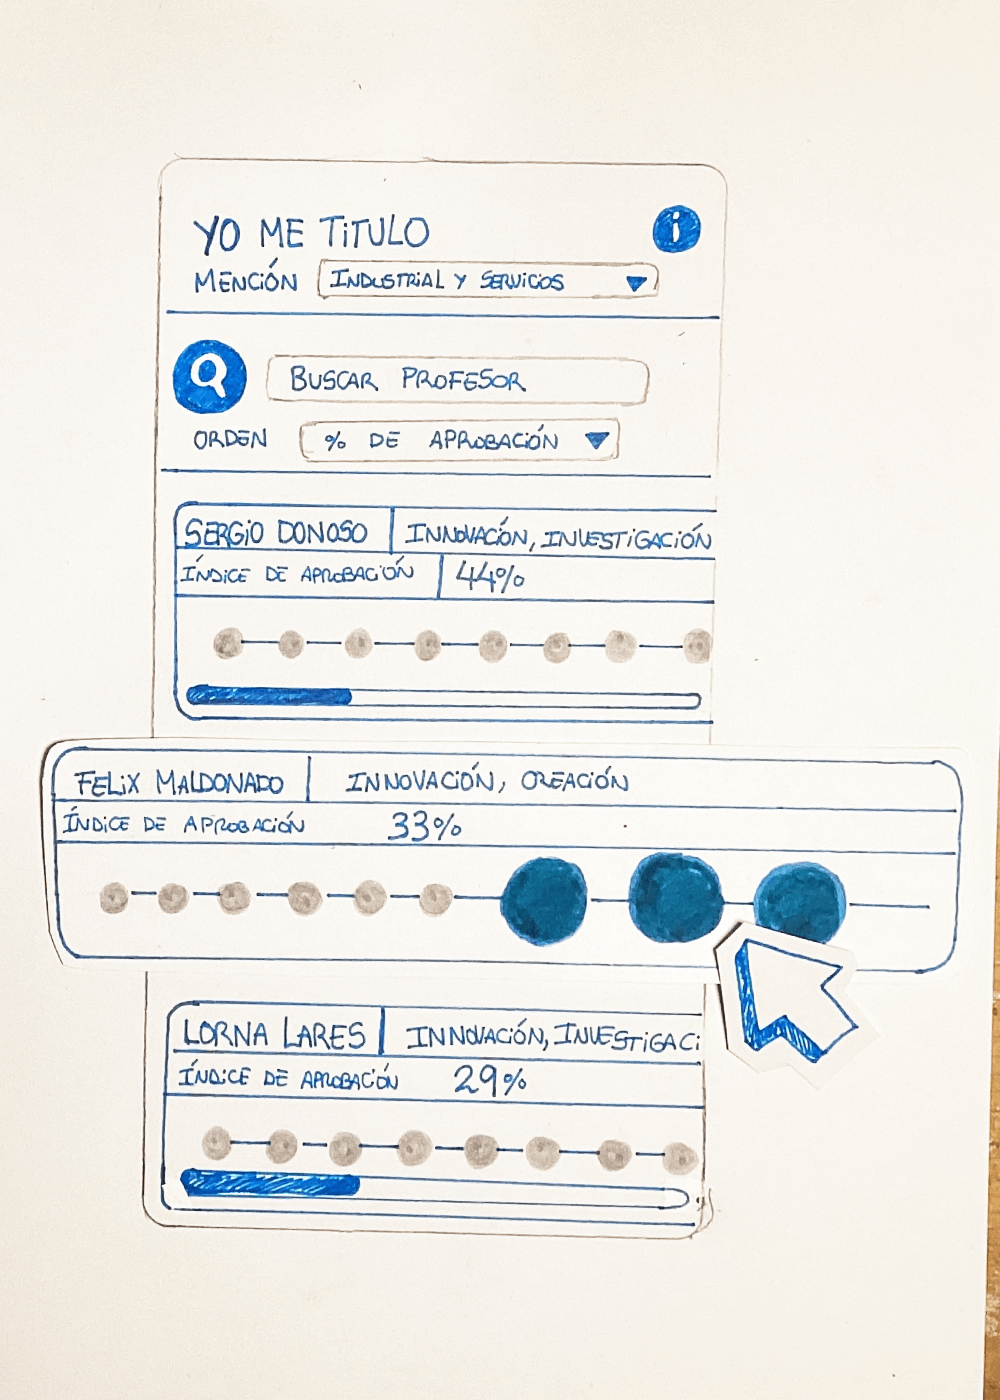 YO ME TITULO
i
MENCIÓN INDUSTRIAL Y SERVICIOS
BUSCAR PROFESOR
ORDEN % DE APROBACIÓN
SERGIO DONOSO INNOVACIÓN, INVESTIGACIÓN
ÍNDICE DE APROBACIÓN 44%
FELIX MALDONADO INNOVACIÓN, CREACIÓN
ÍNDICE DE APROBACIÓN 33%
LORNA LARES INNOVACIÓN, INVESTIGACI
ÍNDICE DE APROBACIÓN 29%